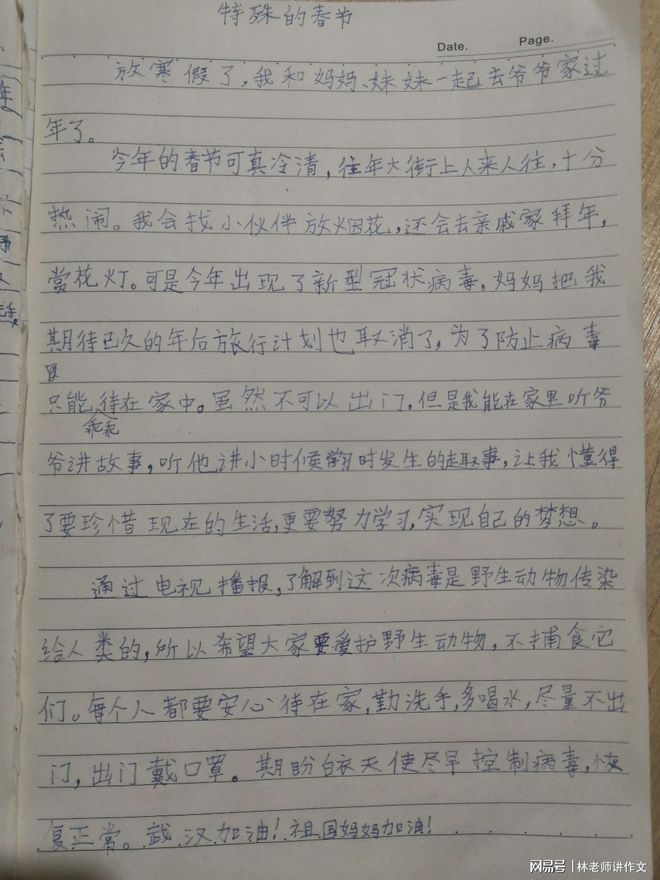 特殊的春节
Date. Page.
放寒假了,我和妈妈、妹妹一起去爷爷家过
年了。
今年的春节可真冷清,往年大街上人来人往,十分
热闹。我会找小伙伴放烟花,还会去亲戚家拜年,
赏花灯。可是今年出现了新型冠状病毒,妈妈把我
期待已久的年后旅行计划也取消了,为了防止病毒
只能乖乖待在家中。虽然不可以出门,但是我能在家里听爷
爷讲故事,听他讲小时候学习时发生的趣事,让我懂得
了要珍惜现在的生活,更要努力学习,实现自己的梦想。
通过电视播报,了解到这次病毒是野生动物传染
给人类的,所以希望大家要爱护野生动物,不捕食它
们。每个人都要安心待在家,勤洗手,多喝水,尽量不出
门,出门戴口罩。期盼白衣天使尽早控制病毒,恢
复正常。武汉加油!祖国妈妈加油!
网易号 | 林老师讲作文